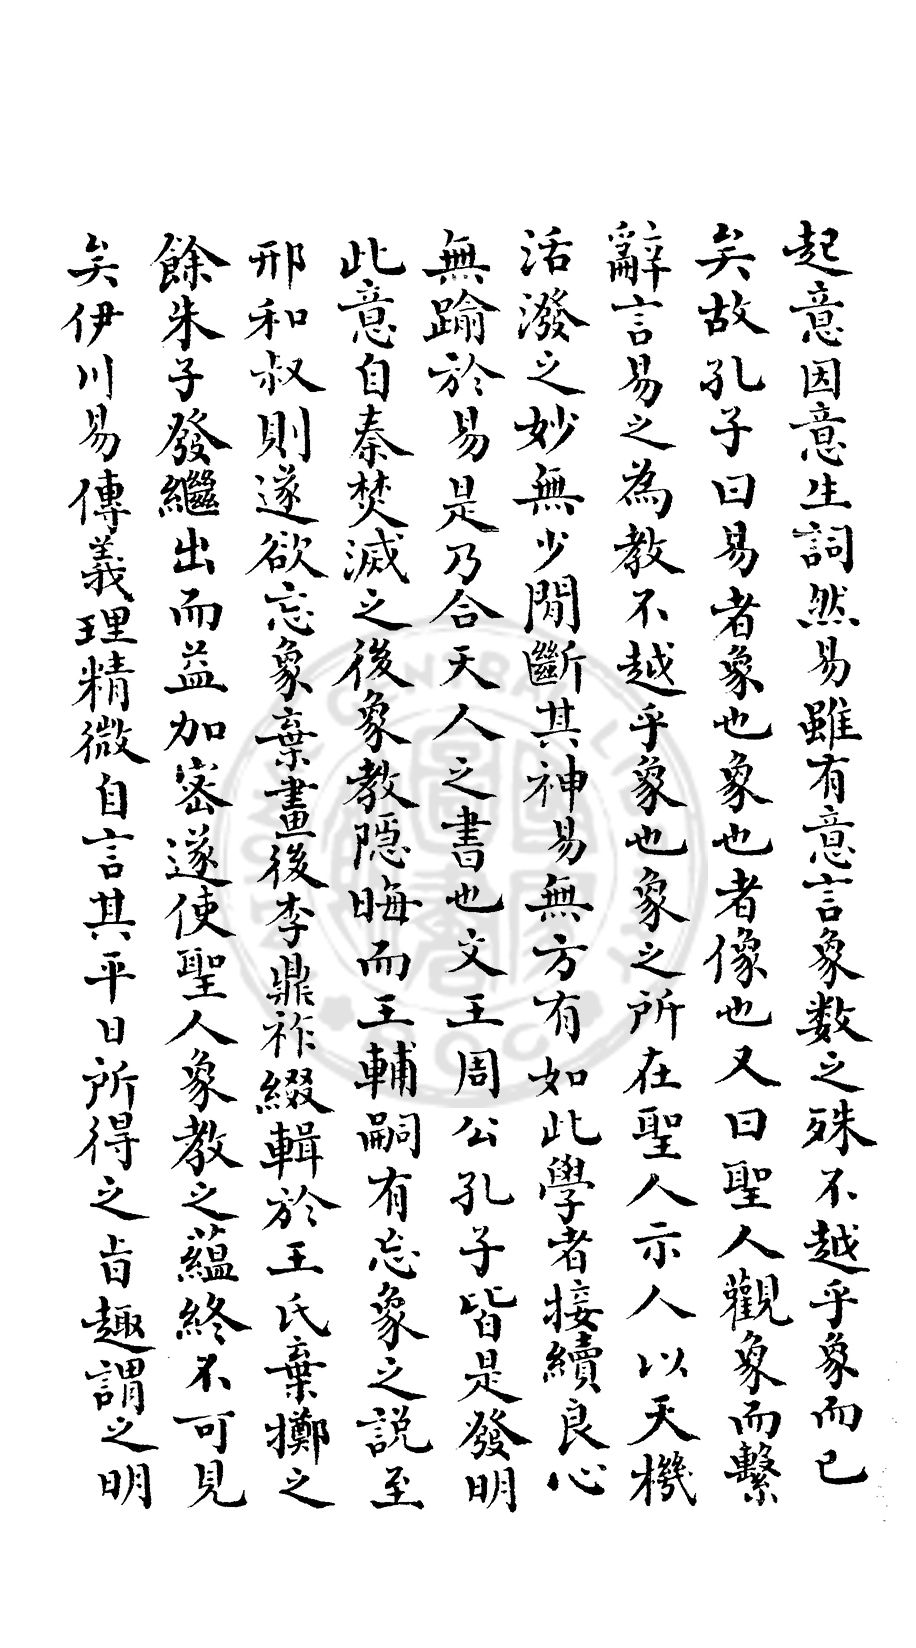 起意因意生詞然易雖有意言象数之殊不越乎象而已
矣故孔子曰易者象也象也者像也又曰聖人觀象而繫
辭言易之為教不越乎象也象之所在聖人示人以天機
活潑之妙無少間斷其神易無方有如此學者接續良心
無踰於易是乃合天人之書也文王周公孔子皆是發明
此意自秦焚滅之後象教隠晦而王輔嗣有忘象之説至
邢和叔則遂欲忘象棄畫後李鼎祚綴輯於王氏棄擲之
餘朱子發繼出而益加密遂使聖人象教之蘊終不可見
矣伊川易傳義理精微自言其平日所得之旨趣謂之明